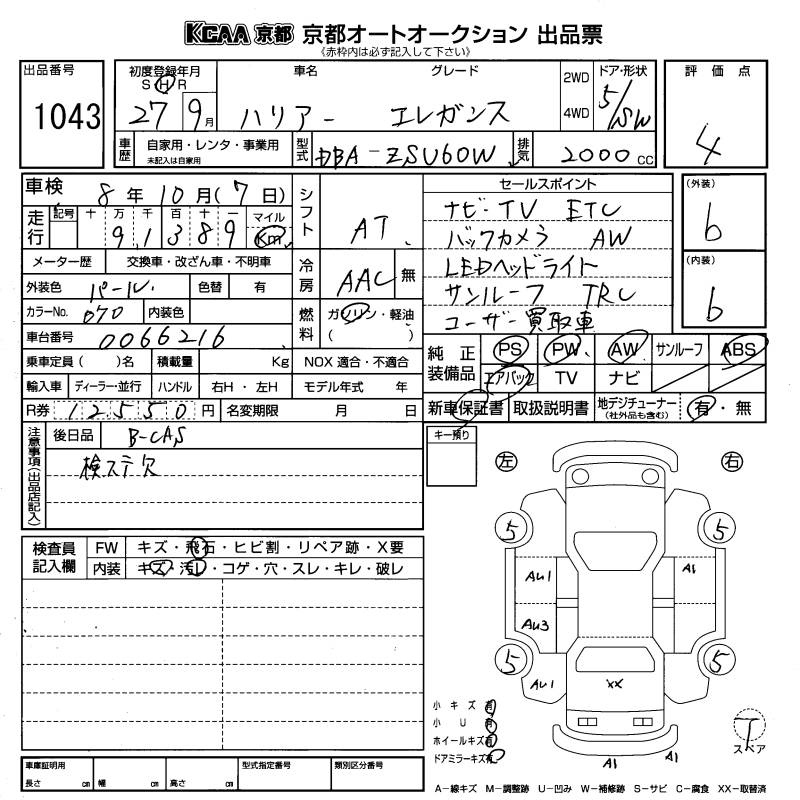 KCAA 京都 京都オートオークション 出品票
《赤枠内は必ず記入して下さい》
出品番号
1043
初度登録年月
S H R
27 9月
車名 グレード
ハリアー エレガンス
2WD
4WD
ドア・形状
5/SW
評価点
4
車歴
自家用・レンタ・事業用
未記入は自家用
型式
DBA-ZSU60W
排気
2000 CC
車検 8年10月(7日)
走行
記号 十 万 千 百 十 一 マイル
9 1 3 8 9 Km
メーター歴 交換車・改ざん車・不明車
外装色 パール 色替 有
カラーNo. 070 内装色
車台番号 0066216
シフト AT
冷房 AAC 無
燃料 ガソリン・軽油
( )
セールスポイント
ナビ・TV ETC
バックカメラ AW
LEDヘッドライト
サンルーフ TRC
ユーザー買取車
(外装)
6
(内装)
6
乗車定員( )名 積載量 Kg NOX 適合・不適合
輸入車 ディーラー・並行 ハンドル 右H・左H モデル年式 年
R券 12550円 名変期限 月 日
純正装備品
PS PW AW サンルーフ ABS
エアバック TV ナビ
新車保証書 取扱説明書 地デジチューナー
(社外品も含む)
有・無
注意事項(出品店記入)
後日品 B-CAS
検ステ欠
キー預り
左 右
検査員記入欄
FW キズ・飛石・ヒビ割・リペア跡・X要
内装 キズ・汚レ・コゲ・穴・スレ・キレ・破レ
5 5
AU1 A1
AU3
5 5
AU1 XX
A1 A1
小キズ有
小U有
ホイールキズ有
ドアミラーキズ有
T
スペア
車庫証明用
長さ cm 幅 cm 高さ cm
型式指定番号
類別区分番号
A-線キズ M-調整跡 U-凹み W-補修跡 S-サビ C-腐食 XX-取替済